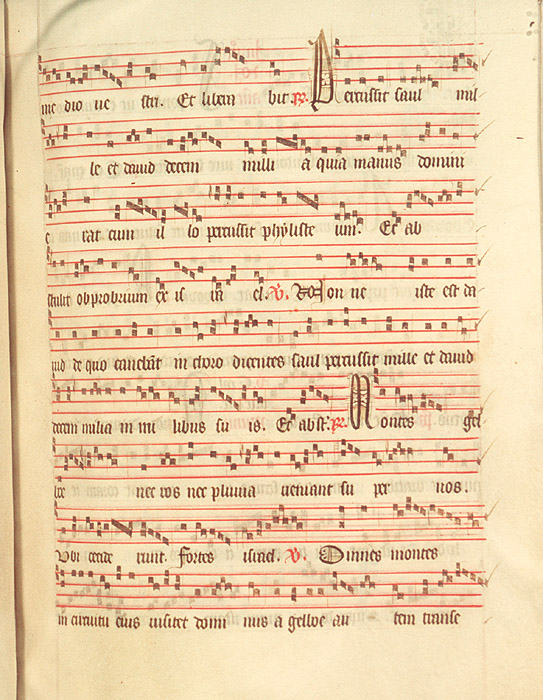 me dio ue stri. Et libera bit R. Percussit saul mil
le et dauid decem milli a quia manus domini
e rat cum il lo percussit phyliste um. Et ab
stulit obprobrium ex is ra el. V. Non ne iste est da
uid de quo canebāt in choro dicentes saul percussit mille et dauid
decem milia in mi libus su is. Et abst. R. Montes gel
boe nec ros nec pluuia ueniant su per uos.
Vbi cecide runt. fortes israel. V. Omnes montes
in circuitu eius uisitet domi nus a gelboe au tem transe